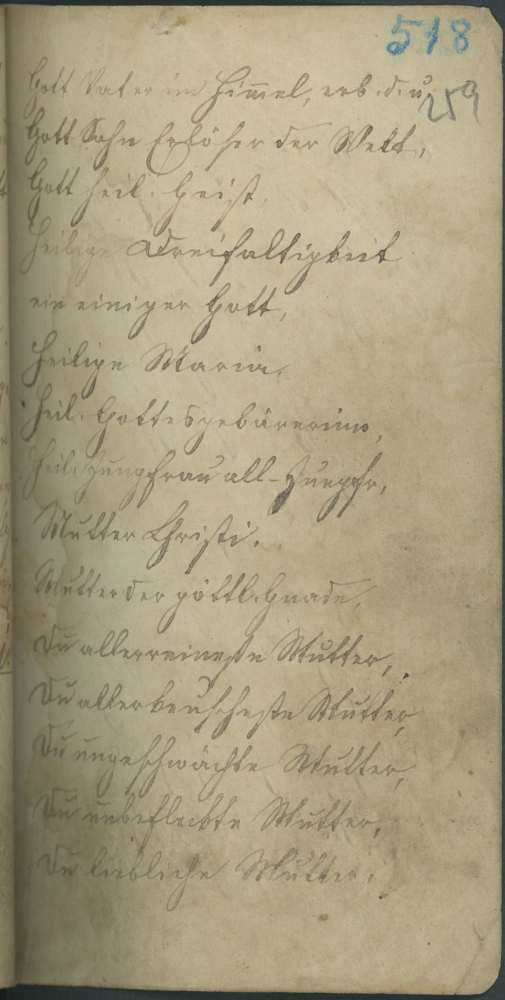 518
259
Gott Vater im Himmel, erb. d. u.
Gott Sohn Erlöser der Welt,
Gott heil. Geist,
Heilige Dreifaltigkeit
ein einiger Gott,
Heilige Maria,
Heil. Gottesgebärerinn,
Heil. Jungfrau all-Jungfr,
Mutter Christi.
Mutter der göttl. Gnade,
Du allerreineste Mutter,
Du allerkeuscheste Mutter,
Du ungeschwächte Mutter,
Du unbefleckte Mutter,
Du liebliche Mutter.